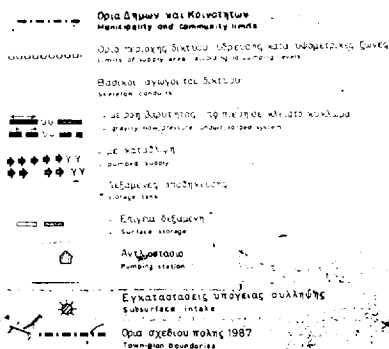 Ορια Δημων και Κοινοτητων
Municipality and community limits
Ορια περιοχης δικτυου υδρευσης κατα υψομετρικες ζωνες
Limits of supply area according to pumping levels
Βασικοι αγωγοι του δικτυου
Skeleton conduits
gravity flow, pressure conduit, looped system
με καταθλιψη
pumped supply
Δεξαμενες αποθηκευσης
storage tank
Επιγεια δεξαμενη
Surface storage
Αντλιοστασιο
Pumping station
Εγκαταστασεις υπογειας συλληψης
Subsurface intake
Ορια σχεδιου πολης 1987
Town-plan boundaries